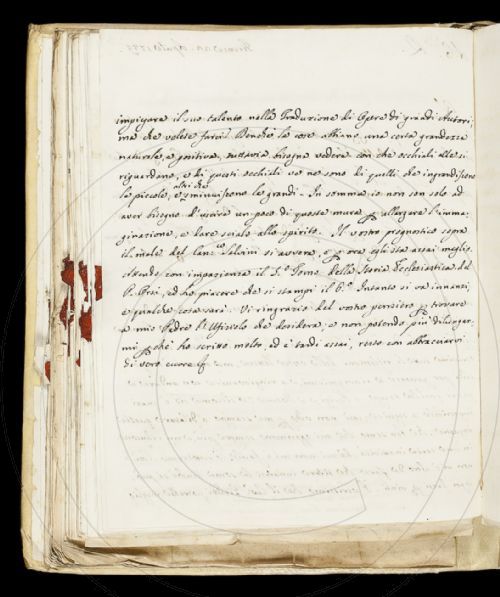 impiegare il suo talento nella Traduzione di Opere di grandi Autori,
ma che volete farci? Benchè le cose abbiano una certa grandezza
naturale, e positiva, tuttavia bisogna vedere con che occhiali elle si
riguardano, e di questi occhiali ve ne sono di quelli che ingrandiscono
altri che
le piccole, e sminuiscono le grandi. In somma io non son solo ad
aver bisogno d'uscire un poco di queste mura per allargare l'imma-
ginazione, e dare scialo allo spirito. Il vostro prognostico sopra
il male del Can.co Salvini si avvera, e per ora egli sta assai meglio.
Attendo con impazienza il 5.o Tomo della Storia Ecclesiastica del
P. Orsi, ed ho piacere che si stampi il 6.o Intanto si va innanzi,
e qualche cosa sarà. Vi ringrazio del vostro pensiero per trovare
a mio Padre l'Ufizio che desidera, e non potendo più dilungar-
mi perchè ho scritto molto ed è tardi assai, resto con abbracciarvi
di vero cuore